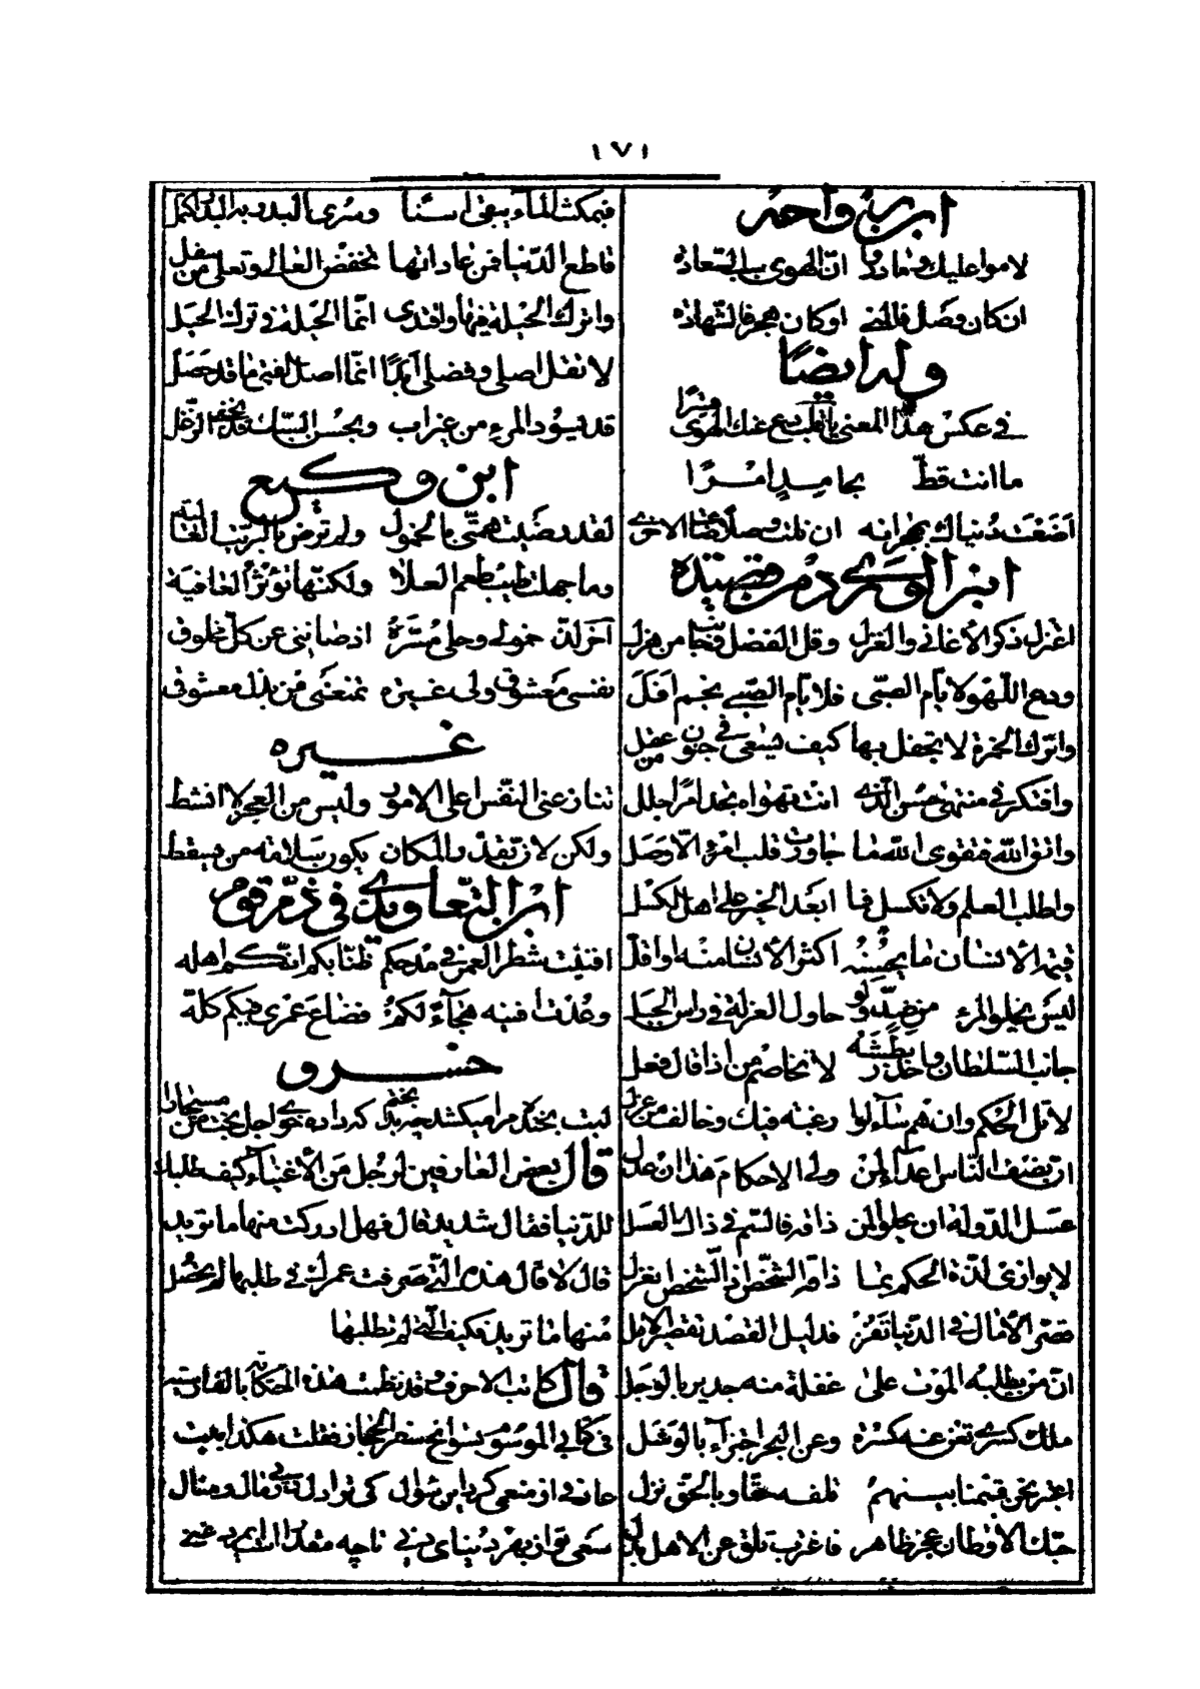 ١٧١
ابن رواحه
لاموا عليك وما دروا ان الهوى سبب السعاده
ان كان وصل فالمنى او كان هجر فالشهاده
وله ايضا
في عكس هذا المعنى يا قلب دع عنك الهوى قسرا
ما انت قط بحامد امرا
اضعت دنياك بهجرانه ان نلت وصلا ضاعت الاخرى
ابن الوردى من قصيده
اعتزل ذكر الأغاني والغزل وقل الفصل وجانب من هزل
ودع الذكر لايام الصبى فلايام الصبى نجم افل
واترك الخمرة لا تحفل بها كيف يسعى في جنون من عقل
وافتكر في منتهى حسن الذى انت تهواه تجد امرا جلل
واتق الله فتقوى الله ما جاورت قلب امرء الا وصل
واطلب العلم ولا تكسل فما ابعد الخير على اهل الكسل
قيمة الانسان ما يحسنه اكثر الانسان منه او اقل
ليس يخلو المرء من ضد ولو حاول العزلة في راس الجبل
جانب السلطان واحذر بطشه لا تخاصم من اذا قال فعل
لا تل الحكم وان هم سألوا رغبة فيك وخالف من عذل
ان نصف الناس اعداء لمن ولى الاحكام هذا ان عدل
عسل الدولة ان يحلو لمن ذاقه فالسم في ذاك العسل
لا يوازى لذة الحكم بما ذاقه الشخص اذا الشخص انعزل
قصر الآمال في الدنيا تفز فدليل العقل تقصير الامل
ان من يطلبه الموت على غفلة منه جدير بالوجل
ملك كسرى تغن عنه كسرة وعن البحر اجتزاء بالوشل
اعتبر نحن قسمنا بينهم تلقه حقا وبالحق نزل
حبك الاوطان عجز ظاهر فاغترب تلق عن الاهل بدل
فبمكث الماء يبقى اسنا وسرى البدر به البدر اكتمل
قاطع الدنيا فمن عاداتها تخفض العالى وتعلى من سفل
واترك الحيلة فيها واقتدى انما الحيلة في ترك الحيل
لا تقل اصلى وفصلى ابدا انما اصل الفتى ما قد حصل
قد يسود المرء من غير اب وبحسن السبك قد ينفى الزغل
ابن وكيع
لقد رضيت همتى بالخمول ولم ترض بالرتب العاليه
وما جهلت طيب طعم العلا ولكنها تؤثر العافية
آخر لذ خمولى وحلى مره اذ صاننى عن كل مخلوق
نفسى معشوقى ولى غيرة تمنعنى من بذل معشوقى
غيره
تنازعنى النفس اعلى الامور وليس من العجز لا انشط
ولكن لان بقدر المكان يكون سلامة من يسقط
ابن التعاويذى في ذم قوم
افنيت شطر العمر في مدحكم ظنا بكم انكم اهله
وعدت افنيه هجاء لكم فضاع عمرى فيكم كله
خسرو
قال بعض العارفين لرجل من الأغنياء كيف طلبك
للدنيا فقال شديد قال فهل ادركت منها ما تريد
قال لا قال هذه التى صرفت عمرك في طلبها لم يحصل
منها ما تريد فكيف التى لم تطلبها
قال كاتب الاحرف وقد نظمت هذه الحكاية بالفارسية
في كتابى الموسوم بسوانح سفر الحجاز فقلت هكذا بيت
عارفى از منعمى كرد اين سؤال كى تو را دل در پى مال ومنال
سعى تو از بهر دنياى دنى تا چه مقدار است اى مرد غنى